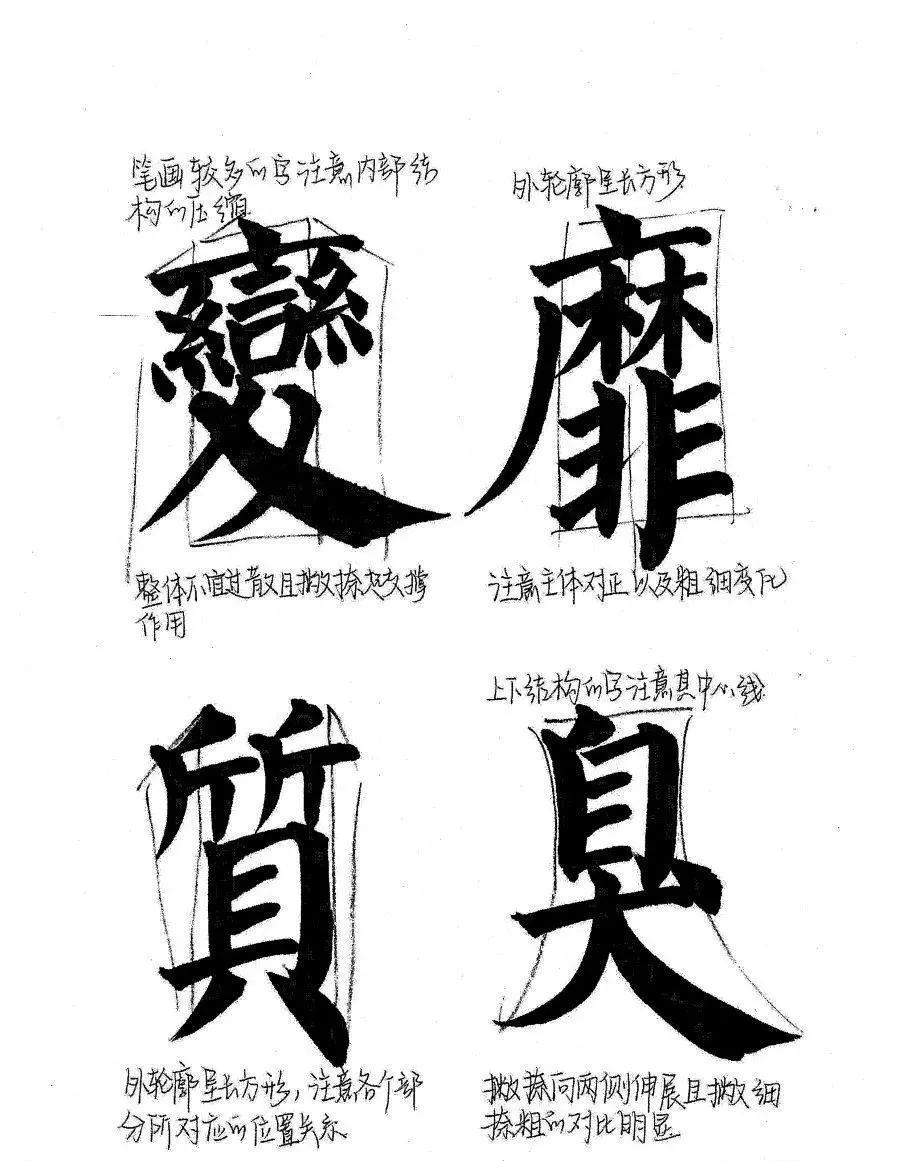 笔画较多的字注意内部结
构的压缩
變
整体不宜过散且撇捺起支撑
作用
外轮廓呈长方形
靡
注意主体对正以及粗细变化
質
外轮廓呈长方形，注意各个部
分所对应的位置关系
上下结构的字注意其中心线
臭
撇捺向两侧伸展且撇细
捺粗的对比明显